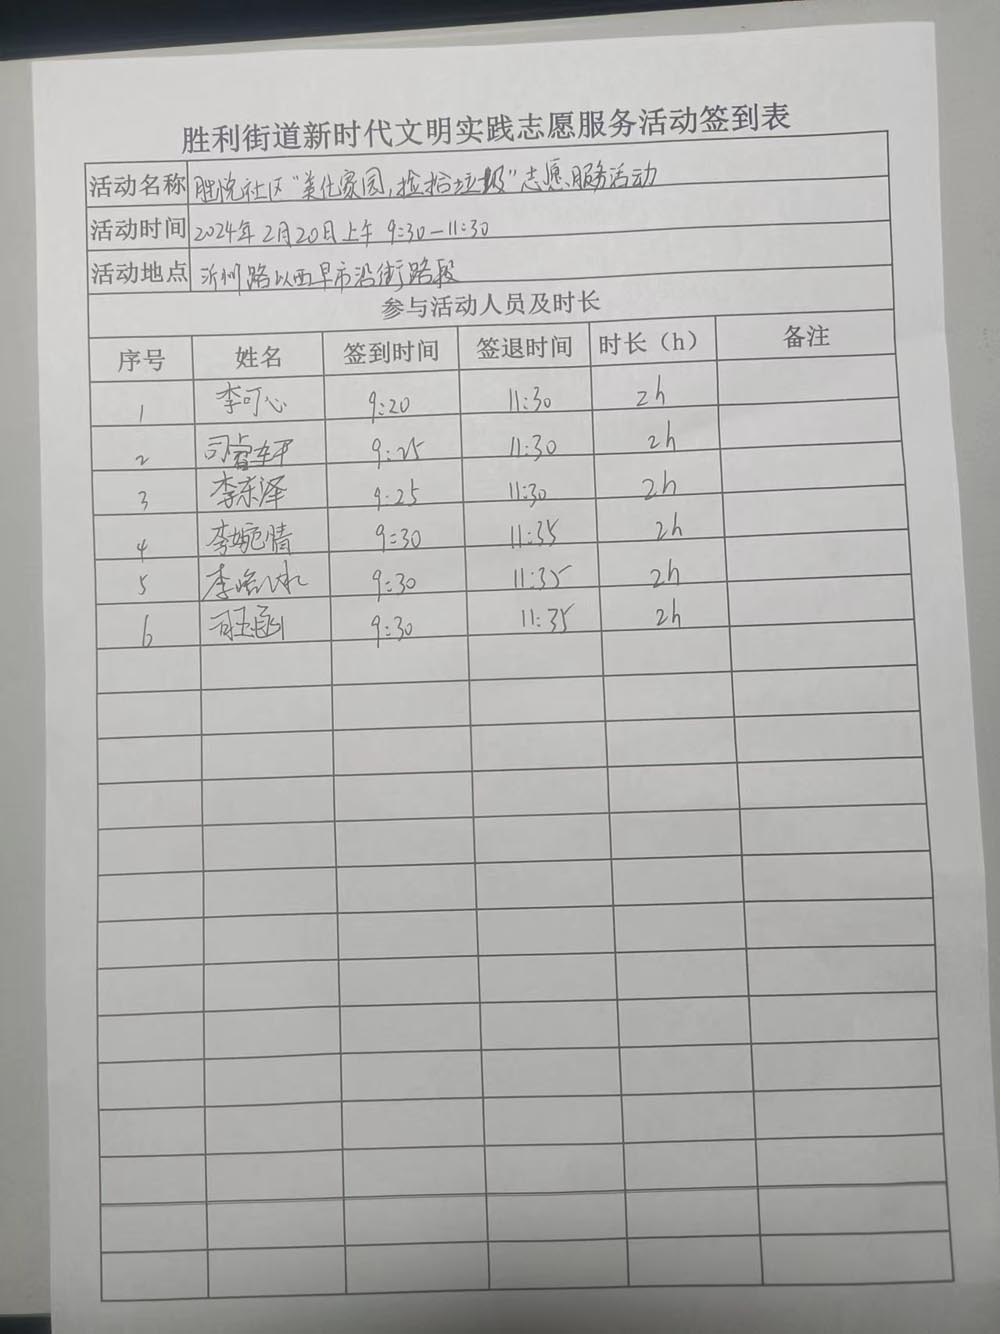 胜利街道新时代文明实践志愿服务活动签到表
活动名称 胜悦社区“美化家园,捡拾垃圾”志愿服务活动
活动时间 2024年2月20日上午 9:30-11:30
活动地点 沂州路以西早市沿街路段
参与活动人员及时长
序号 姓名 签到时间 签退时间 时长（h） 备注
1 李可心 9:20 11:30 2h
2 司睿轩 9:25 11:30 2h
3 李东泽 9:25 11:30 2h
4 李婉情 9:30 11:35 2h
5 李 9:30 11:35 2h
6 司玉函 9:30 11:35 2h